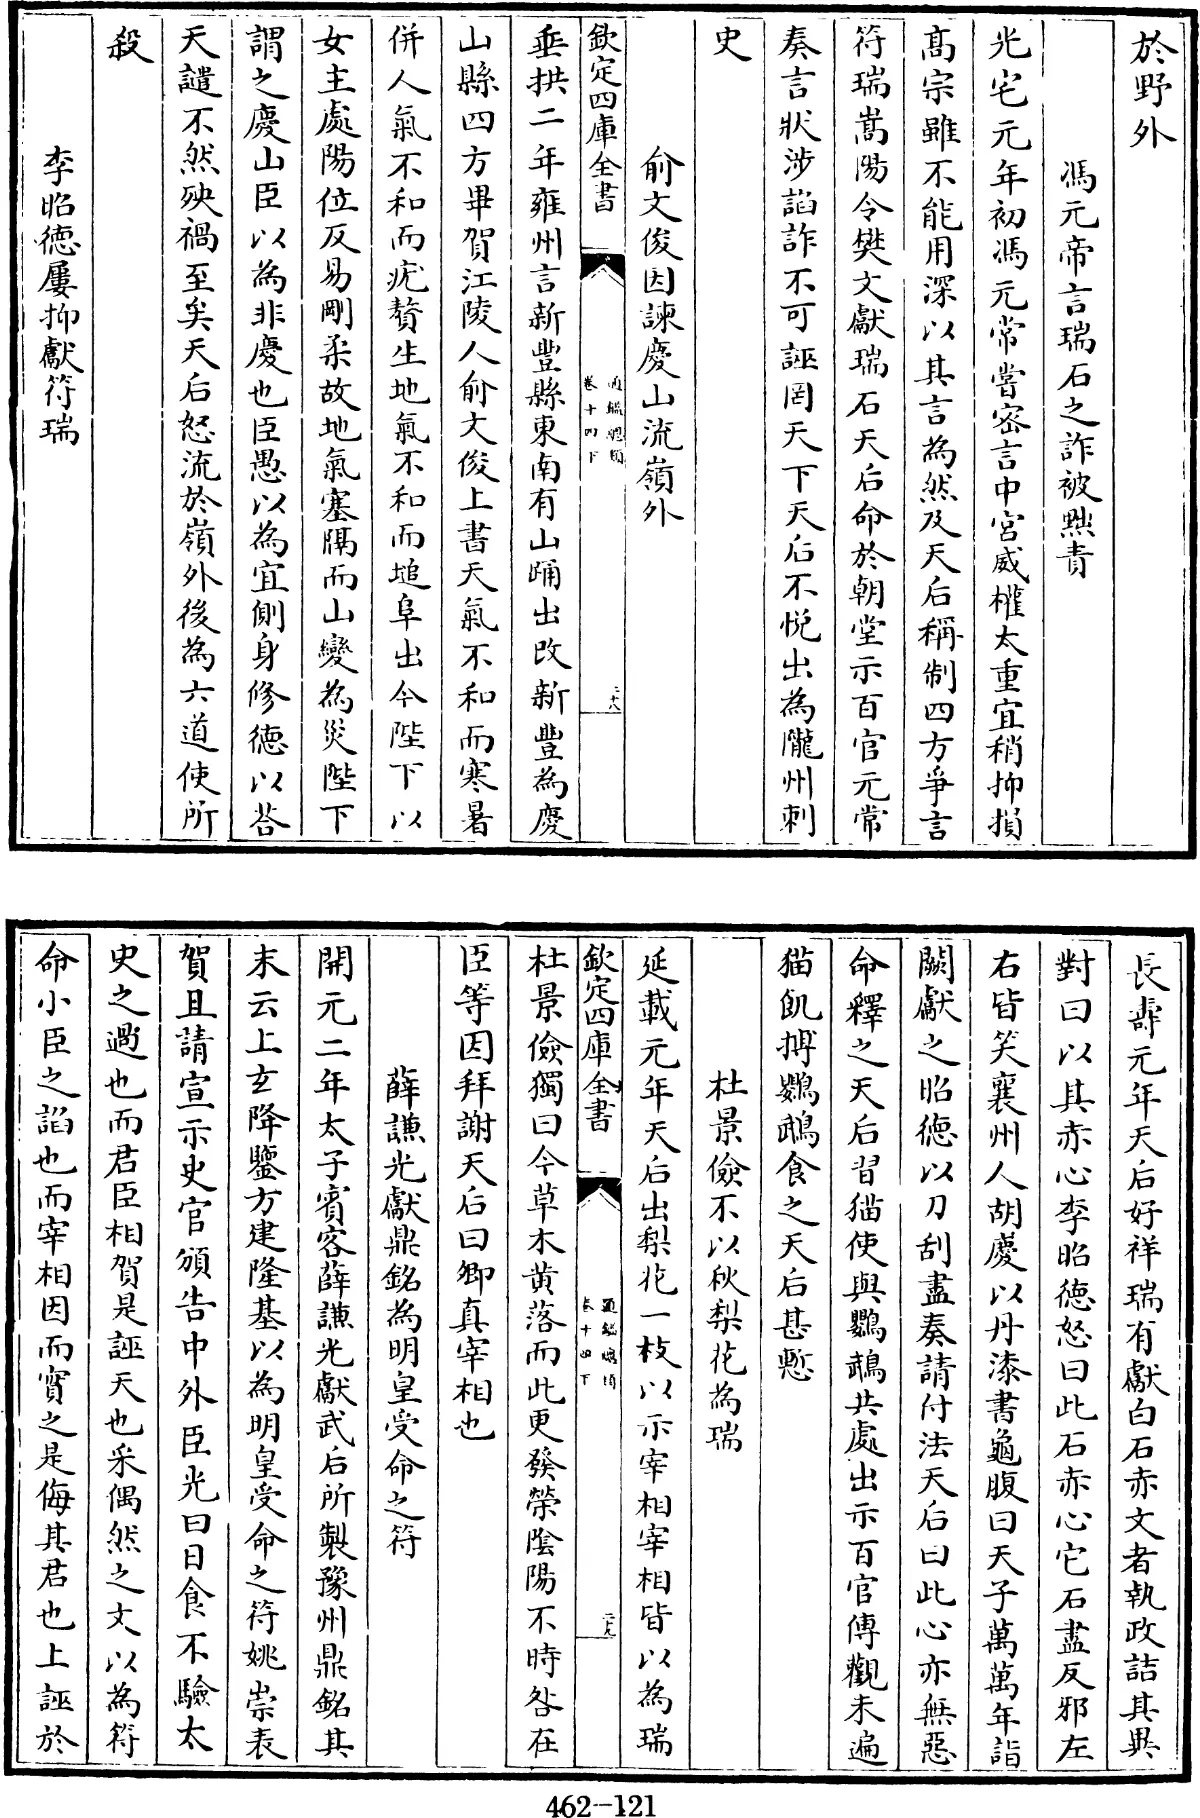 於野外
馮元帝言瑞石之詐被黜責
光宅元年初馮元常嘗密言中宮威權太重宜稍抑損
高宗雖不能用深以其言為然及天后稱制四方爭言
符瑞嵩陽令樊文獻瑞石天后命於朝堂示百官元常
奏言狀涉諂詐不可誣罔天下天后不悅出為隴州刺
史
俞文俊因諫慶山流嶺外
欽定四庫全書
通鑑總類
卷十四下
二十八
垂拱二年雍州言新豐縣東南有山踊出改新豐為慶
山縣四方畢賀江陵人俞文俊上書天氣不和而寒暑
併人氣不和而疣贅生地氣不和而塠阜出今陛下以
女主處陽位反易剛柔故地氣塞隔而山變為災陛下
謂之慶山臣以為非慶也臣愚以為宜側身修德以荅
天譴不然殃禍至矣天后怒流於嶺外後為六道使所
殺
李昭德屢抑獻符瑞
長壽元年天后好祥瑞有獻白石赤文者執政詰其異
對曰以其赤心李昭德怒曰此石赤心它石盡反邪左
右皆笑襄州人胡慶以丹漆書龜腹曰天子萬萬年詣
闕獻之昭德以刀刮盡奏請付法天后曰此心亦無惡
命釋之天后習猫使與鸚鵡共處出示百官傳觀未遍
猫飢搏鸚鵡食之天后甚慙
杜景儉不以秋梨花為瑞
延載元年天后出梨花一枝以示宰相宰相皆以為瑞
欽定四庫全書
通鑑總類
卷十四下
二十九
杜景儉獨曰今草木黃落而此更發榮陰陽不時咎在
臣等因拜謝天后曰卿真宰相也
薛謙光獻鼎銘為明皇受命之符
開元二年太子賓客薛謙光獻武后所製豫州鼎銘其
末云上玄降鑒方建隆基以為明皇受命之符姚崇表
賀且請宣示史官頒告中外臣光曰日食不驗太
史之過也而君臣相賀是誣天也采偶然之文以為符
命小臣之諂也而宰相因而實之是侮其君也上誣於
462-121